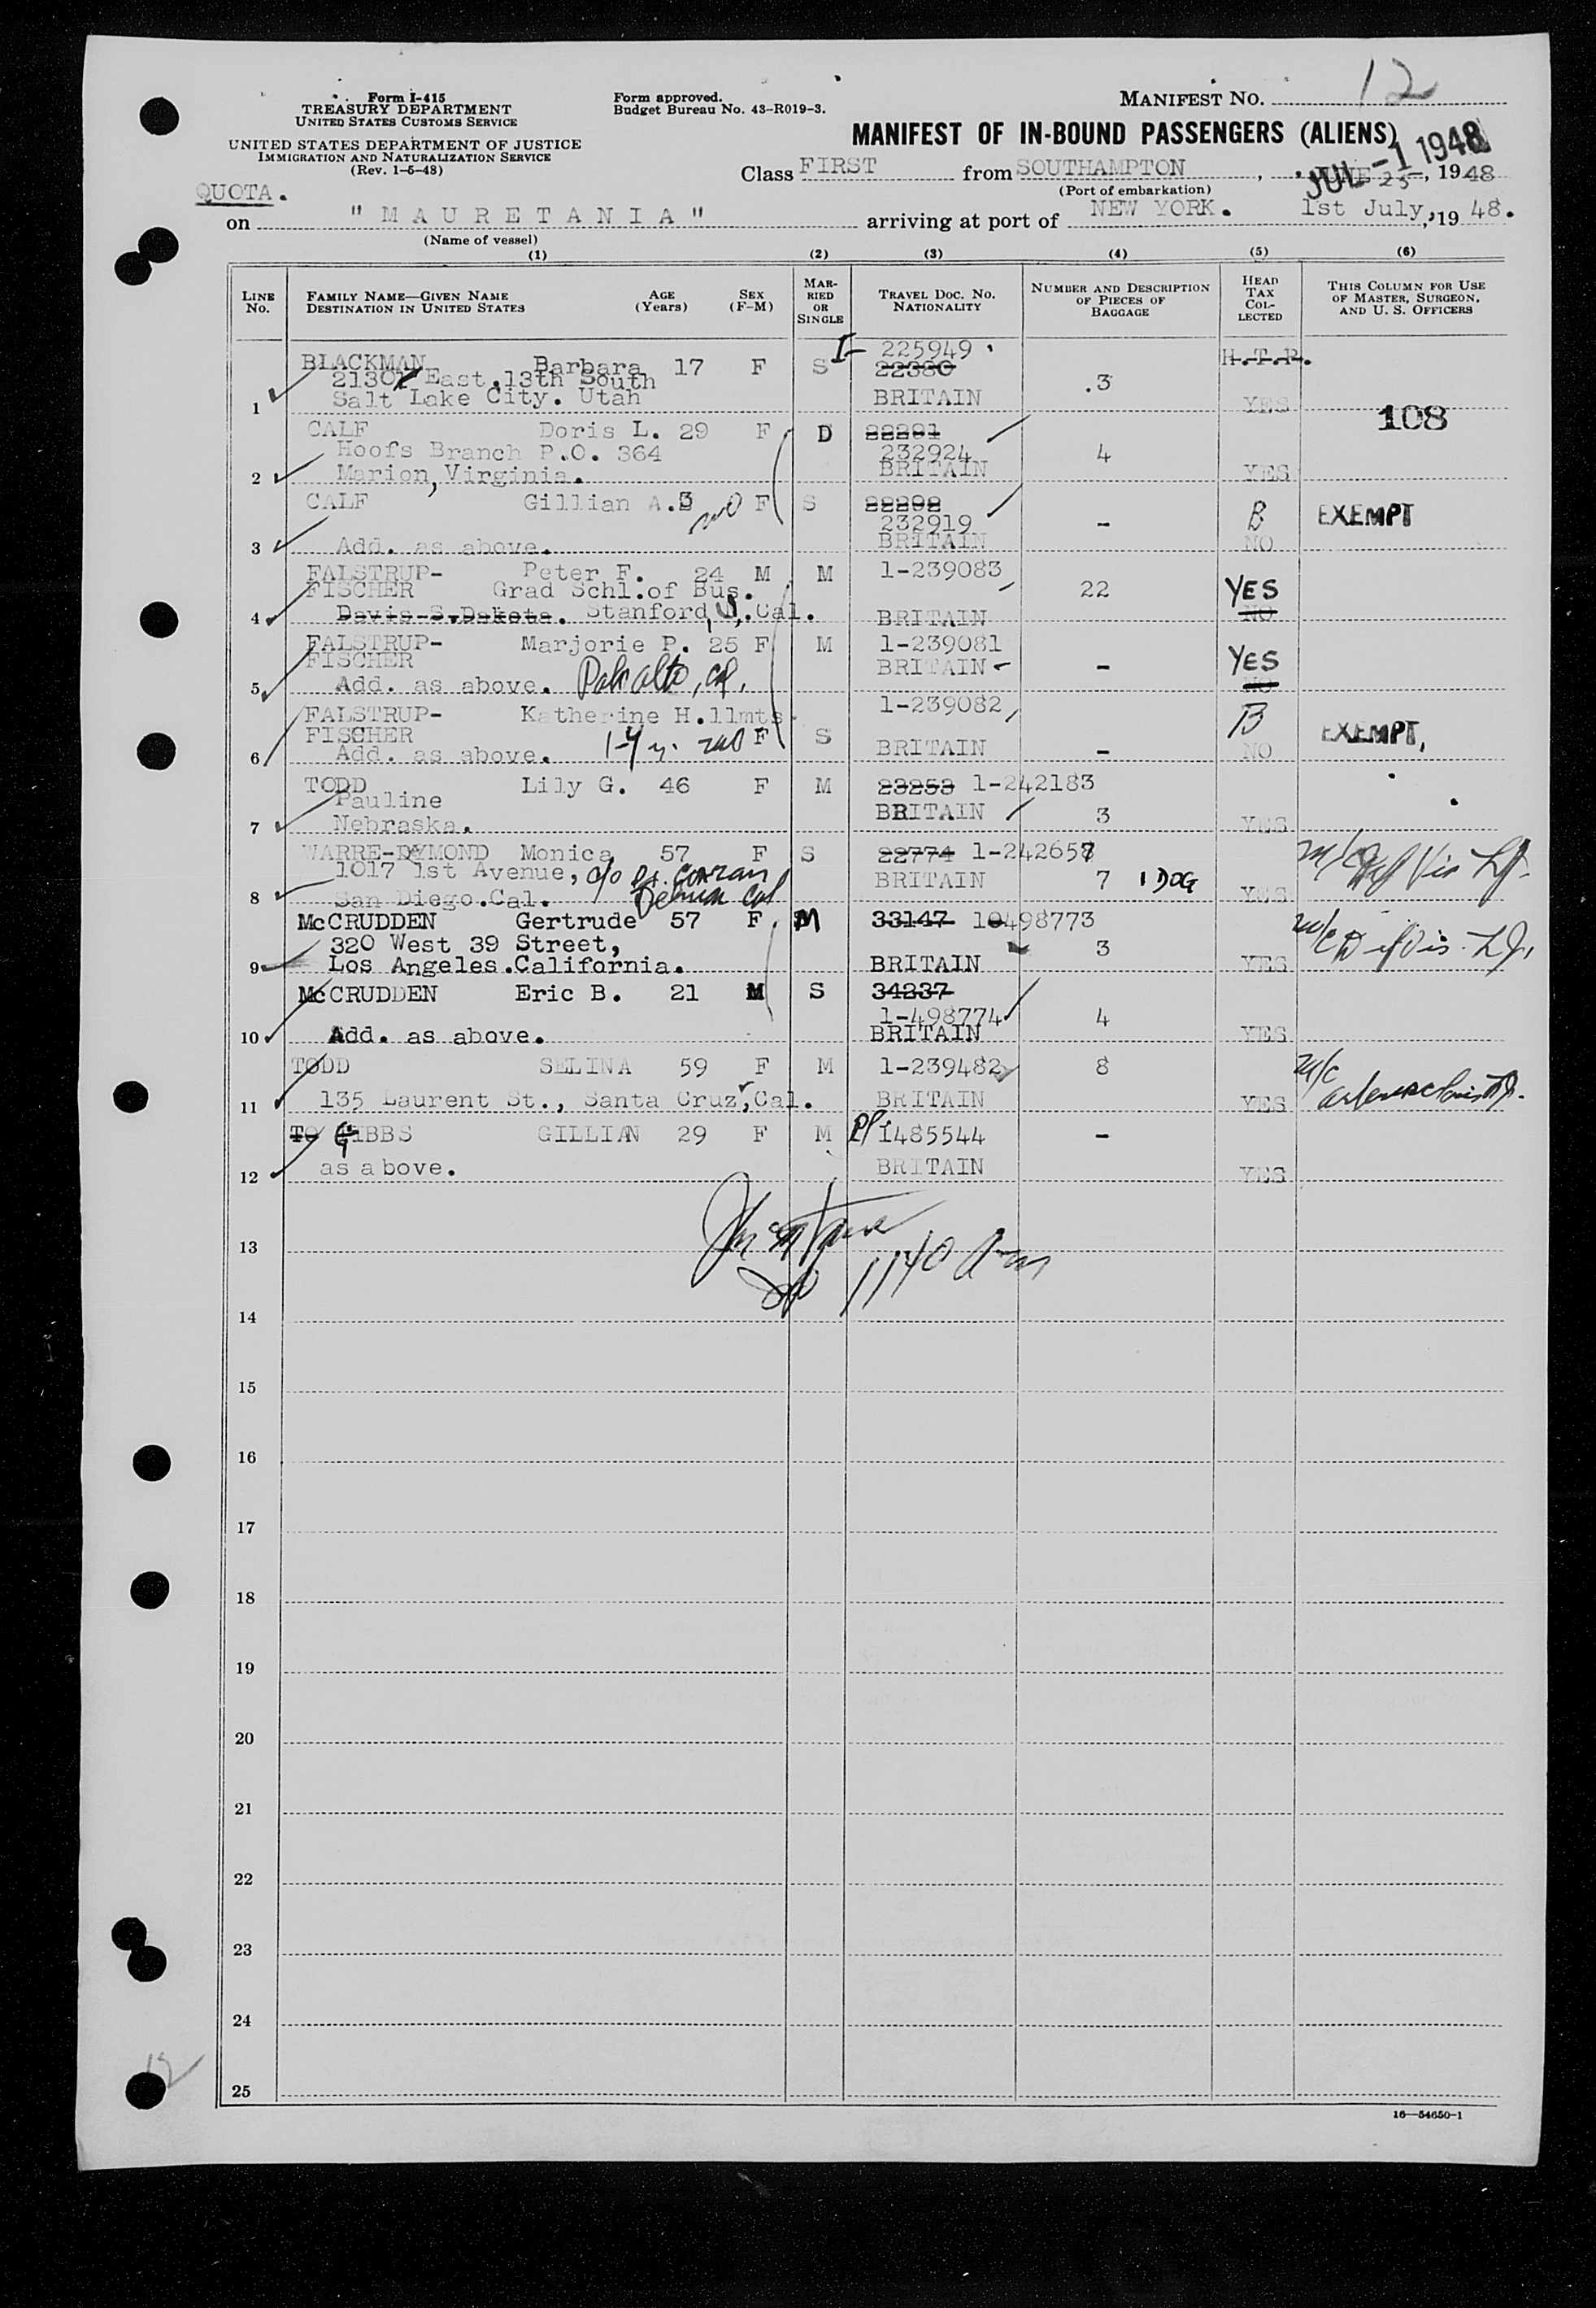 Form I-415
TREASURY DEPARTMENT
UNITED STATES CUSTOMS SERVICE
UNITED STATES DEPARTMENT OF JUSTICE
IMMIGRATION AND NATURALIZATION SERVICE
(Rev. 1-5-48)
Form approved.
Budget Bureau No. 43-R019-3.
MANIFEST NO. 12
MANIFEST OF IN-BOUND PASSENGERS (ALIENS)
JUL -1 1948
Class FIRST from SOUTHAMPTON, 23, 1948
(Port of embarkation)
QUOTA.
on "MAURETANIA" arriving at port of NEW YORK. 1st July, 1948.
(Name of vessel)
(1) (2) (3) (4) (5) (6)
LINE No. FAMILY NAME—GIVEN NAME DESTINATION IN UNITED STATES AGE (Years) SEX (F-M) MARRIED OR SINGLE TRAVEL DOC. NO. NATIONALITY NUMBER AND DESCRIPTION OF PIECES OF BAGGAGE HEAD TAX COLLECTED THIS COLUMN FOR USE OF MASTER, SURGEON, AND U. S. OFFICERS
I- 225949 H.T.P.
BLACKMAN Barbara 17 F S 22380
2130 East 13th South 3
1 Salt Lake City. Utah BRITAIN YES 108
CALF Doris L. 29 F D 22291
Hoofs Branch P.O. 364 232924 4
2 Marion, Virginia. BRITAIN YES
CALF Gillian A. 3 F S 22292
232919 - B EXEMPT
3 Add. as above. BRITAIN NO
FALSTRUP- Peter F. 24 M M 1-239083
FISCHER Grad Schl.of Bus. 22 YES
4 Davis S.Dakota. Stanford, U,.Cal. BRITAIN NO
FALSTRUP- Marjorie P. 25 F M 1-239081
FISCHER BRITAIN - YES
5 Add. as above. Palo Alto, Cal. NO
FALSTRUP- Katherine H. 11mts 1-239082 B
FISCHER 1-4 F S EXEMPT,
6 Add. as above. BRITAIN - NO
TODD Lily G. 46 F M 23253 1-242183
Pauline BRITAIN 3
7 Nebraska. YES
WARRE-DYMOND Monica 57 F S 22774 1-242657
1017 1st Avenue, c/o BRITAIN 7 1 DOG
8 San Diego.Cal. YES
McCRUDDEN Gertrude 57 F M 33147 10498773
320 West 39 Street, 3
9 Los Angeles.California. BRITAIN YES
McCRUDDEN Eric B. 21 M S 34237
1-498774 4
10 Add. as above. BRITAIN YES
TODD SELINA 59 F M 1-239482 8 m/c
11 135 Laurent St., Santa Cruz, Cal. BRITAIN YES
TO GIBBS GILLIAN 29 F M PP 1485544 -
12 as above. BRITAIN YES
13
1140 am
14
15
16
17
18
19
20
21
22
23
24
12
25
16—54650-1